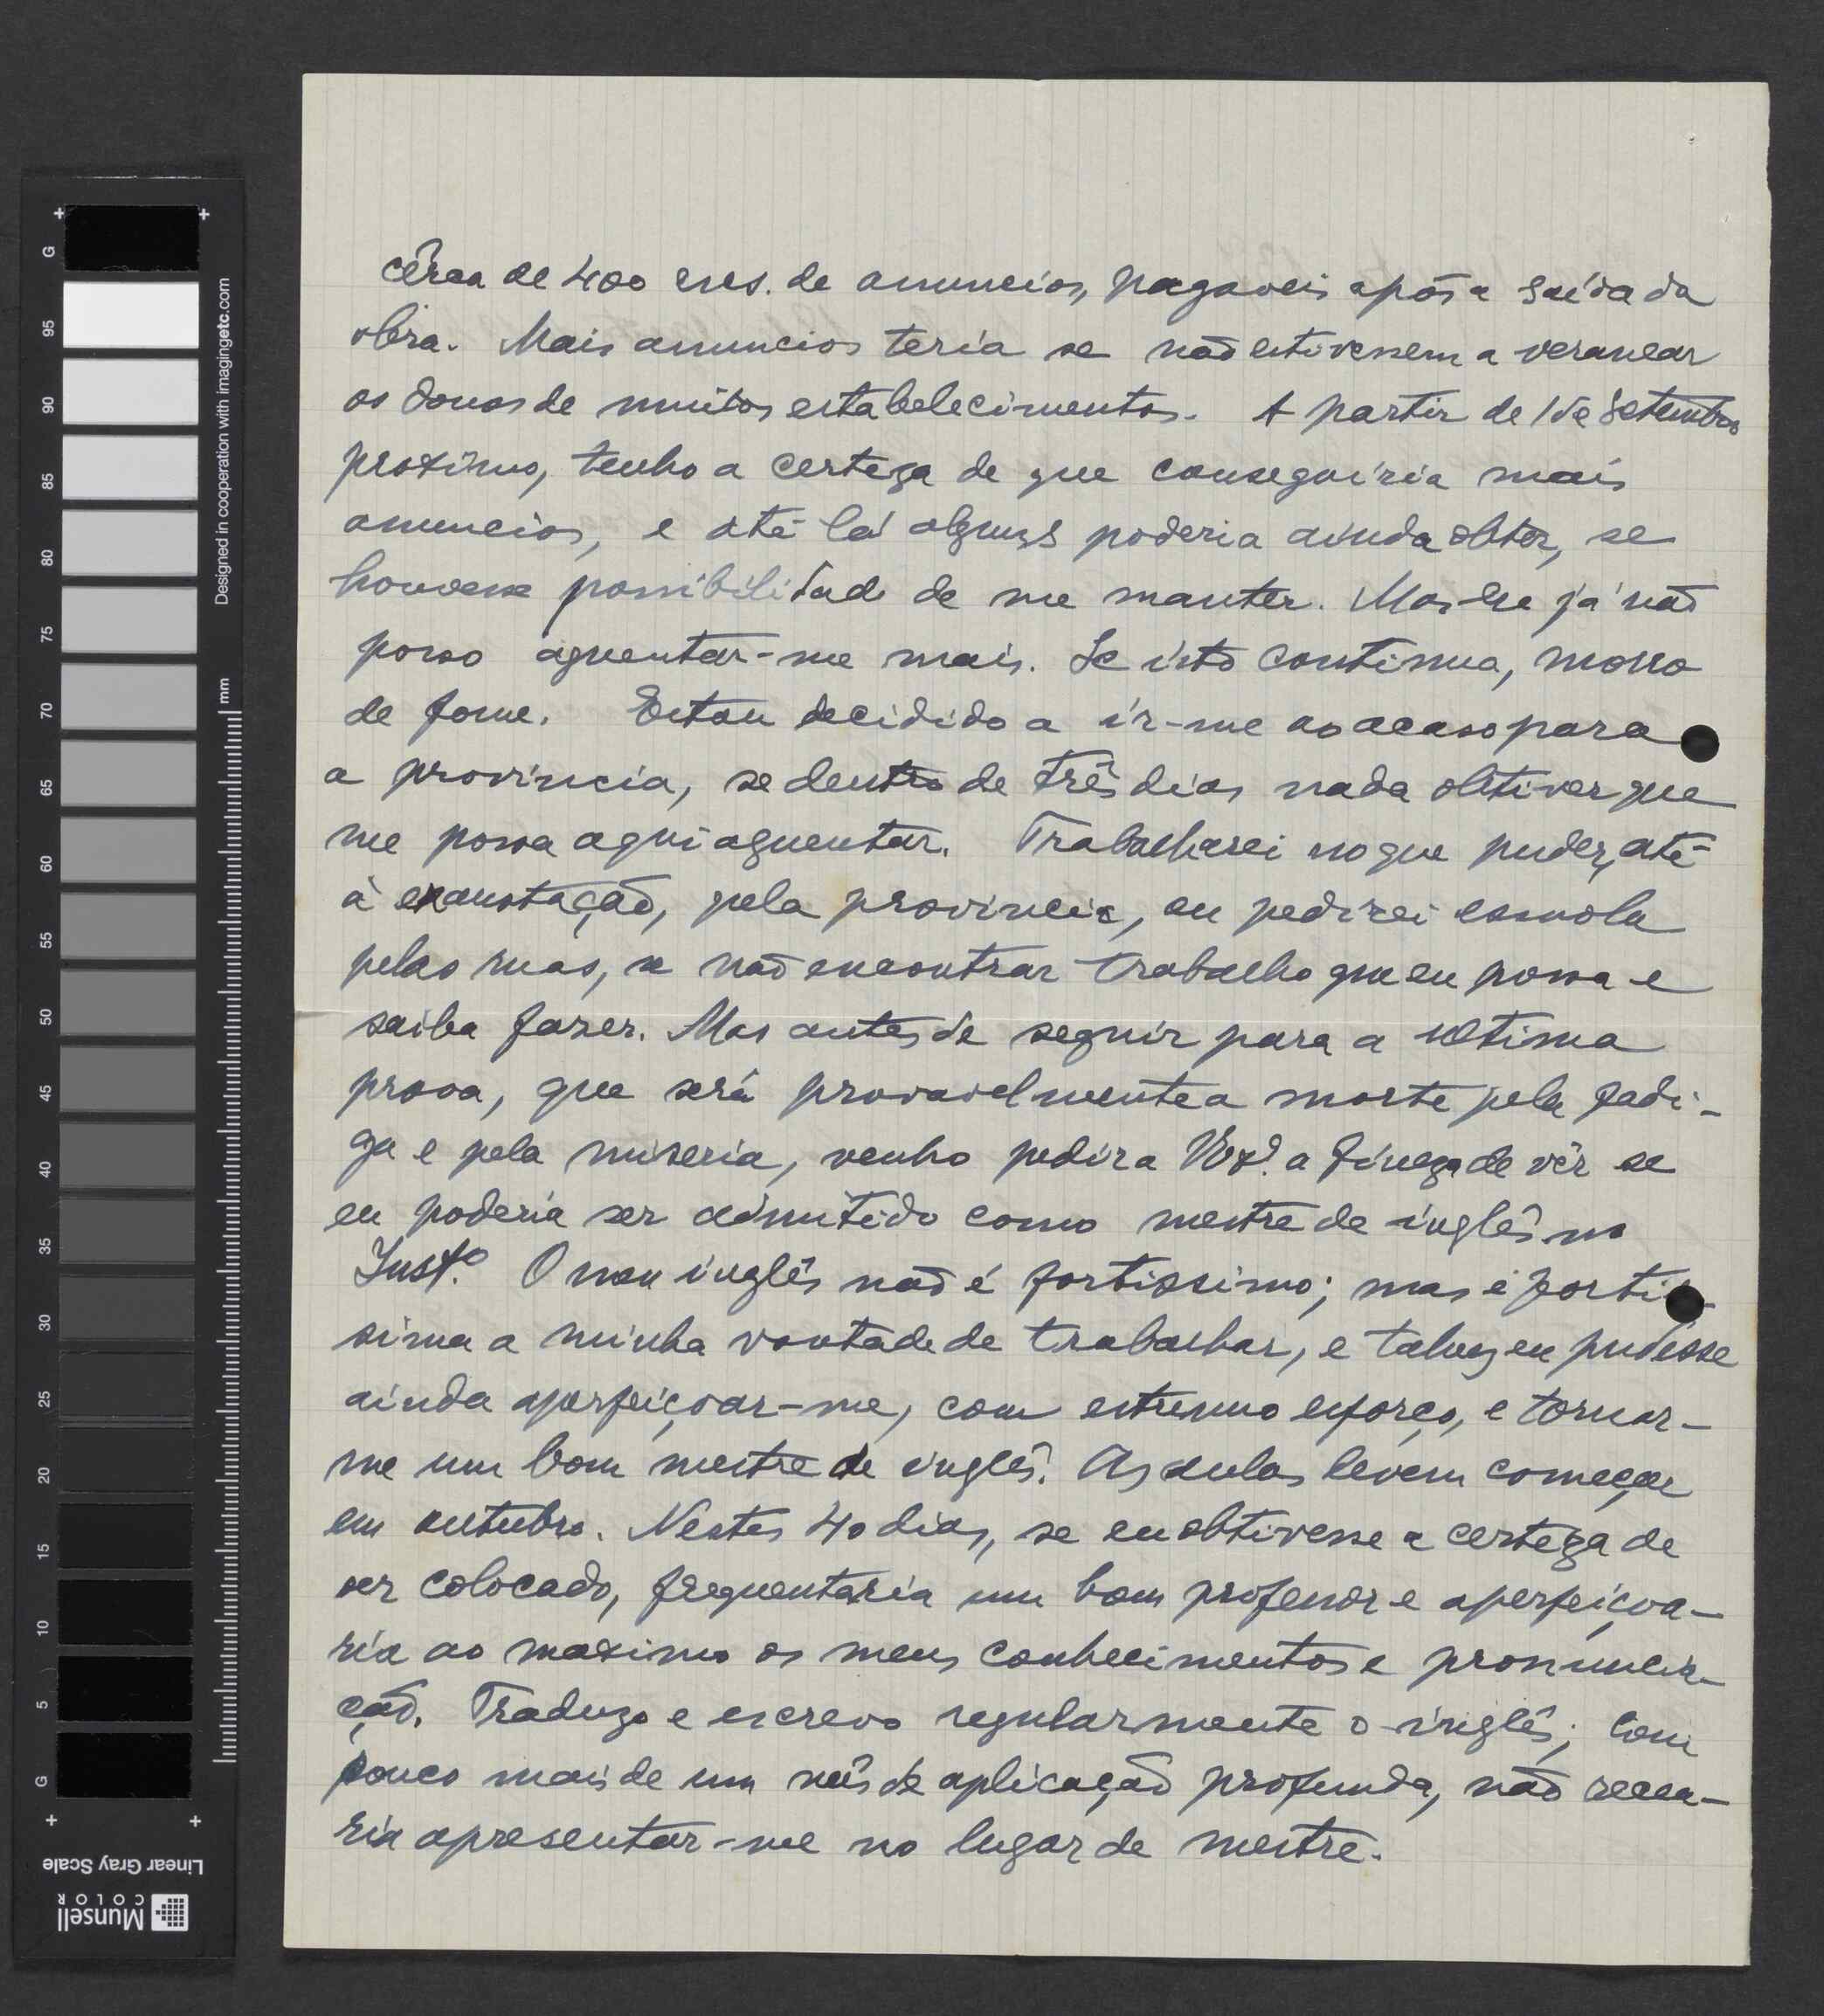 cêrca de 400 escs. de anuncios, pagaveis após a saída da
obra. Mais anuncios teria se não estivessem a veranear
os donos de muitos estabelecimentos. A partir de 1 de Setembro
proximo, tenho a certeza de que conseguiria mais
anuncios, e até lá alguns poderia ainda obter, se
houvesse possibilidade de me manter. Mas já não
posso aguentar-me mais. Se isto continua, morro
de fome. Estou decidido a ir-me ao acaso para
a provincia, se dentro de três dias nada obtiver que
me possa aqui aguentar. Trabalharei no que puder, até
à exaustação, pela provincia, ou pedirei esmola
pelas ruas, se não encontrar trabalho que eu possa e
saiba fazer. Mas antes de seguir para a ultima
prova, que será provavelmente a morte pela fadi-
ga e pela miseria, venho pedir a V. a fineza de vêr se
eu poderia ser admitido como mestre de inglês no
Inst.º O meu inglês não é fortissimo; mas é fortis-
sima a minha vontade de trabalhar, e talvez eu pudesse
ainda aperfeiçoar-me, com extremo esforço, e tornar-
me um bom mestre de inglês. As aulas devem começar
em outubro. Nestes 40 dias, se eu obtivesse a certeza de
ser colocado, frequentaria um bom professor e aperfeiçoa-
ria ao maximo os meus conhecimentos e pronuncia-
ção. Traduzo e escrevo regularmente o inglês; com
pouco mais de um mês de aplicação profunda, não recea-
ria apresentar-me no lugar de mestre.
Designed in cooperation with imagingetc.com
mm
G 95 90 85 80 75 70 65 60 55 50 45 40 35 30 25 20 15 10 5 G
Linear Gray Scale
Munsell
COLOR